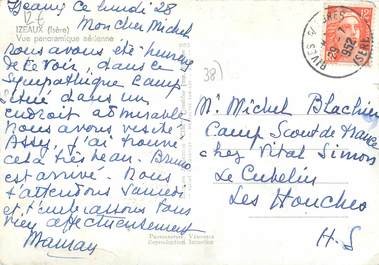 Izeaux ce lundi 28
Mon cher Michel
12 €
IZEAUX (Isère)
Vue panoramique aérienne
Nous avons été heureux
de te voir, dans ce
sympathique camp
situé dans un
endroit admirable
Nous avons visité
Assy, j'ai trouvé
cela très beau. Bruno
est arrivé. Nous
t'attendons samedi
et t'embrassons tous
bien affectueusement
Maman
38)
RIVES S/ FURES
29 - 7
1952
ISERE
Mr Michel Blachier
Camp Scout de France
chez Vital Simon
Le Cubelin
Les Houches
H-S
Reproduction Interdite